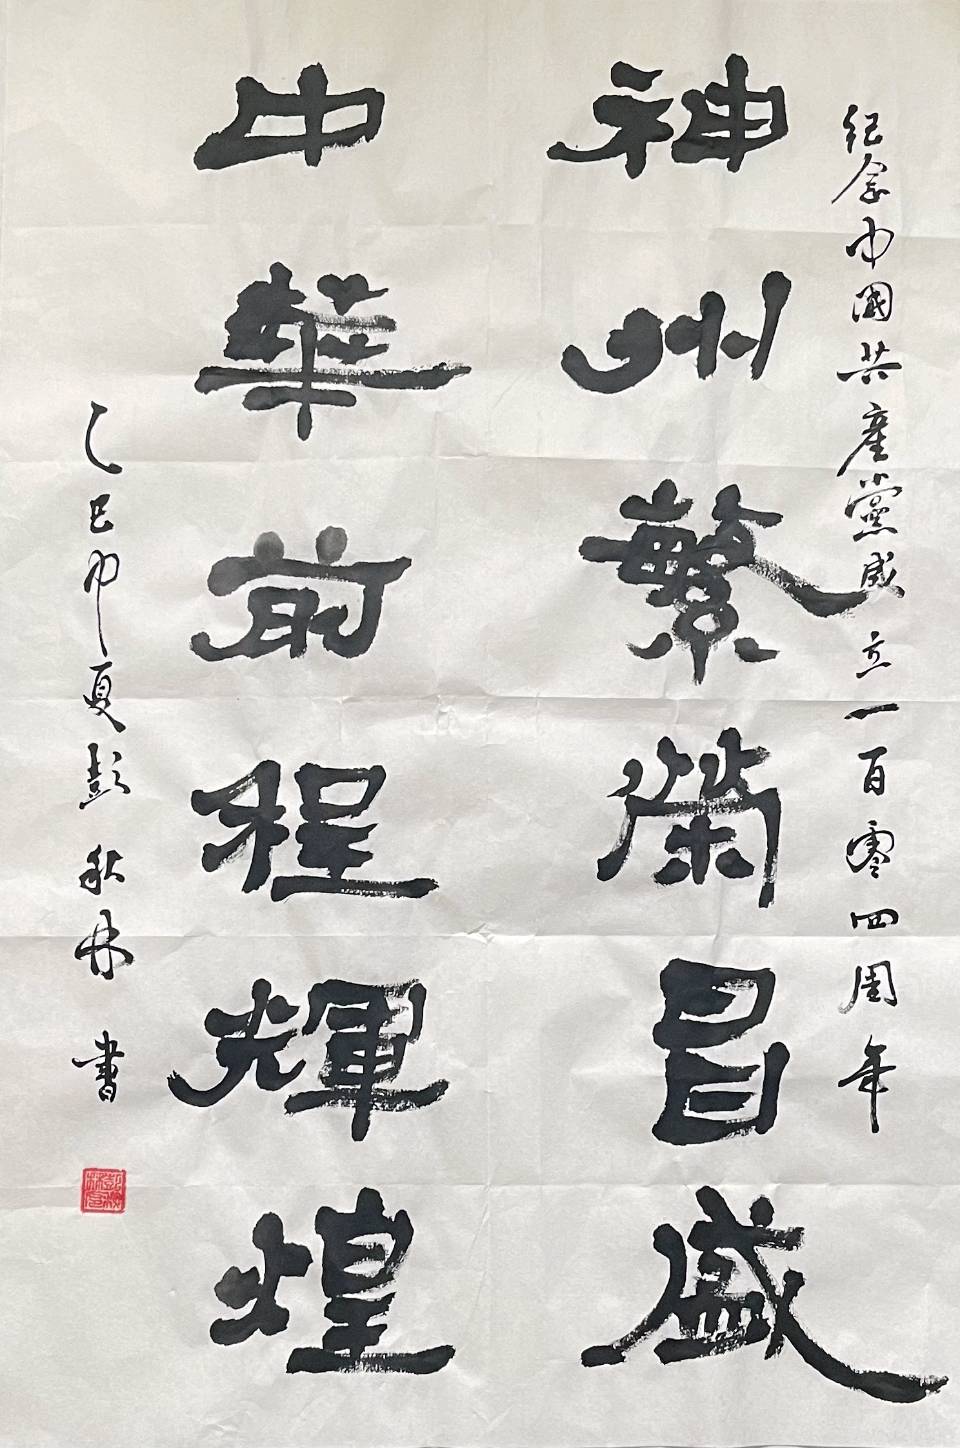 纪念中國共産黨成立一百零四周年
神州繁榮昌盛
中華前程輝煌
乙巳仲夏彭秋林書